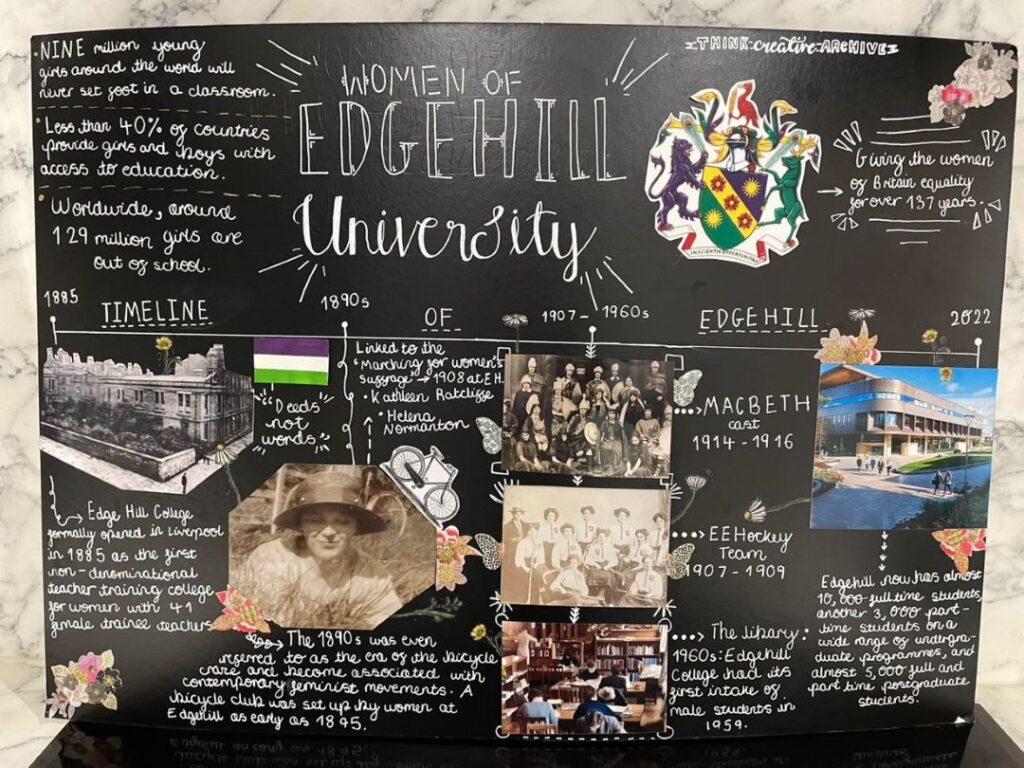 NINE million young
girls around the world will
never set foot in a classroom.
Less than 40% of countries
provide girls and boys with
access to education.
Worldwide, around
129 million girls are
out of school.
WOMEN OF
EDGEHILL
University
THINK creative ARCHIVE
Giving the women
of Britain equality
for over 137 years.
1885
TIMELINE
1890s
OF
1907-1960s
EDGEHILL
2022
"Deeds
not
words"
Linked to the
Marching for women's
suffrage → 1908 at E.H.
• Kathleen Ratcliffe
• Helena
Normanton
Edge Hill College
formally opened in Liverpool
in 1885 as the first
non-denominational
teacher training college
for women with 41
female trainee teachers
The 1890s was even
referred to as the era of the bicycle
craze and become associated with
contemporary feminist movements. A
bicycle club was set up by women at
Edgehill as early as 1895.
MACBETH
cast
1914-1916
EEHockey
Team
1907-1909
The library:
1960s: Edgehill
College had its
first intake of
male students in
1959.
Edgehill now has almost
10,000 full time students,
another 3,000 part-
time students on a
wide range of undergra-
duate programmes, and
almost 5,000 full and
part time postgraduate
students.